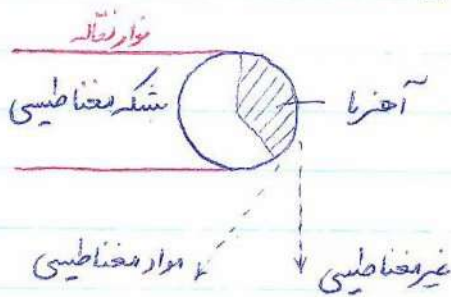 نوار نقاله
بشکه مغناطیسی
آهنربا
مواد مغناطیسی
غیر مغناطیسی